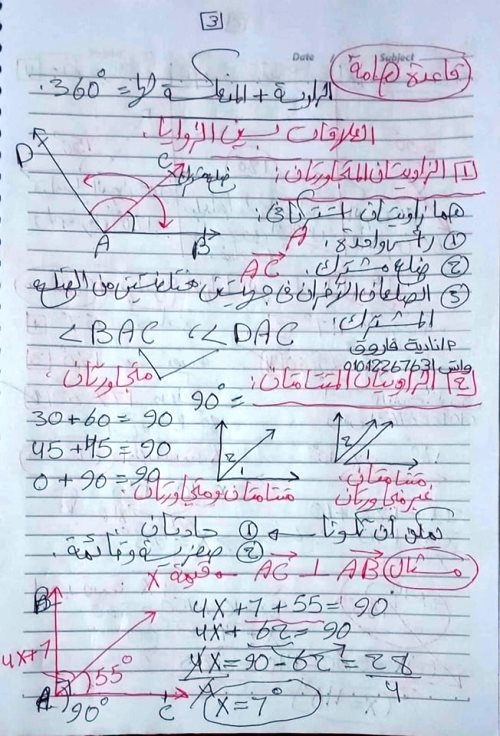 3
Date
Subject
قاعدة هامة
الزاوية + المنعكسة لها = 360°.
العلاقات بين الزوايا.
1 الزاويتان المتجاورتان:
ضلع مشترك
هما زاويتان اشتركا فى:
① رأس واحدة. A
② ضلع مشترك. AC
③ الضلعان الآخران فى جهتين مختلفتين من الضلع
المشترك:
D C A B
<BAC ، <DAC
متجاورتان
م/نادية فاروق
واتس/01012267631
2 الزاويتان المتتامتان:
= 90°
30 + 60 = 90
45 + 45 = 90
0 + 90 = 90
2 1
2 1
متتامتان ومتجاورتان
متتامتان غير متجاورتان
ممكن أن تكونا ① حادتان
② صفرية وقائمة.
مثال AB ⊥ AC قيمة X
4X + 7 + 55 = 90
4X + 62 = 90
4X = 90 - 62 = 28
4 4
X = 7°
B
4X+7
55°
A 90° C